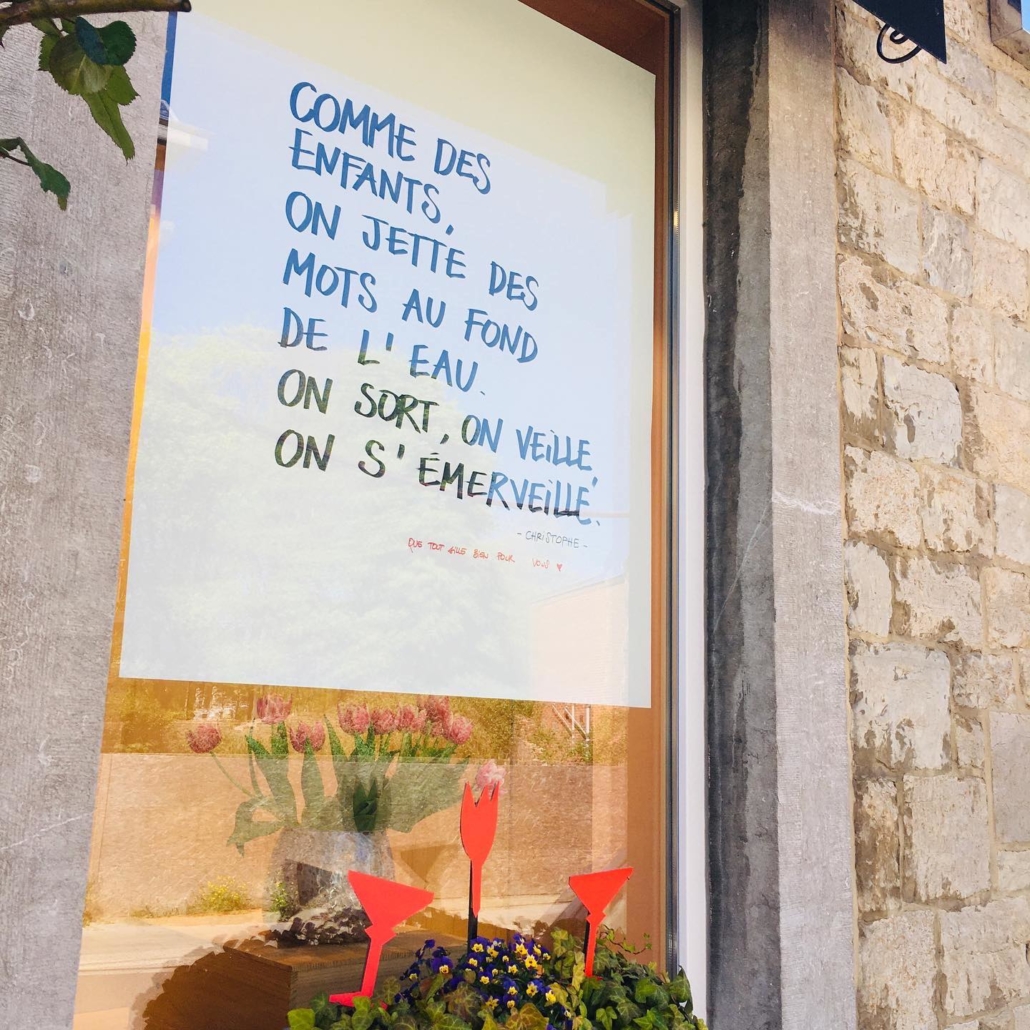 COMME DES
ENFANTS,
ON JETTE DES
MOTS AU FOND
DE L'EAU.
ON SORT, ON VEILLE,
ON S'ÉMERVEILLE.
- CHRISTOPHE -
QUE TOUT AILLE BIEN POUR VOUS ♥